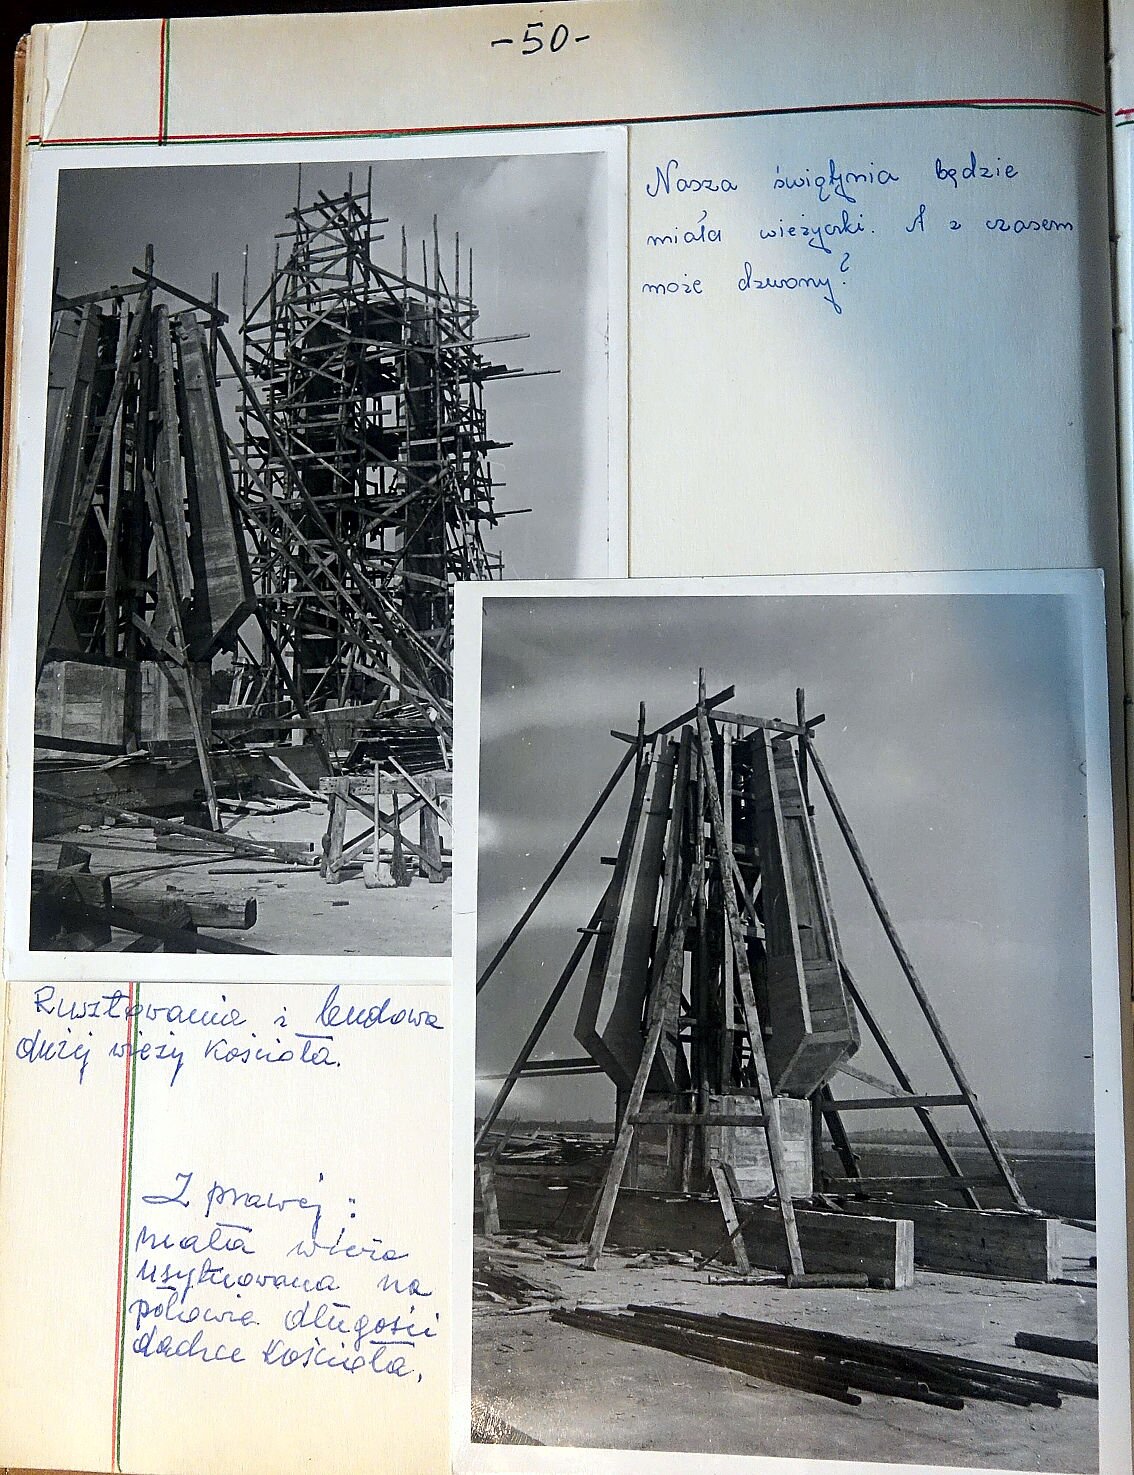 -50-
Nasza świątynia będzie
miała wieżyczki. A z czasem
może dzwony?
Rusztowanie i budowa
dużej wieży Kościoła.
Z prawej:
mała wieża
usytuowana na
połowie długości
dachu Kościoła.